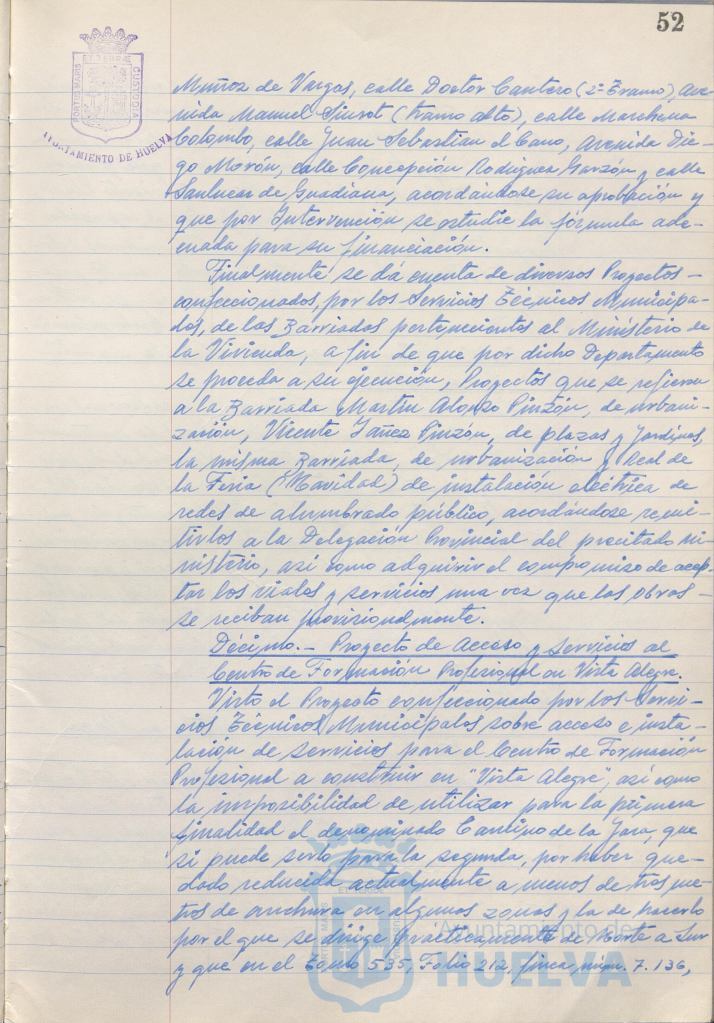 52
PORTUS MARIS ET TERRAE CUSTODIA
AYUNTAMIENTO DE HUELVA
Muñoz de Vargas, calle Doctor Cantero (2º Tramo), Ave-
nida Manuel Siurot (tramo alto), calle Marchena
Colombo, calle Juan Sebastian el Cano, Avenida Die-
go Morón, calle Concepción Rodriguez Garzón y calle
Sanlucar de Guadiana, acordándose su aprobación y
que por Intervención se estudie la fórmula ade-
cuada para su financiación.
Finalmente se dá cuenta de diversos Proyectos -
confeccionados, por los Servicios Técnicos Municipa-
les, de las Barriadas pertenecientes al Ministerio de
la Vivienda, a fin de que por dicho Departamento
se proceda a su ejecución, Proyectos que se refieren
a la Barriada Martin Alonso Pinzón, de urbani-
zación, Vicente Yañez Pinzón, de plazas y Jardines,
la misma Barriada, de urbanización y Real de
la Feria (Navidad) de instalación eléctrica de
redes de alumbrado público, acordándose remi-
tirlos a la Delegación Provincial del precitado Mi-
nisterio, asi como adquirir el compromiso de acep-
tar los viales y servicios una vez que las obras -
se reciban provisionalmente.
Décimo.- Proyecto de Acceso y Servicios al
Centro de Formación Profesional en Vista Alegre.
Visto el Proyecto confeccionado por los Servi-
cios Técnicos Municipales sobre acceso e insta-
lación de servicios para el Centro de Formación
Profesional a construir en "Vista Alegre", asi como
la imposibilidad de utilizar para la primera
finalidad el denominado Camino de la Joya, que
si puede serlo para la segunda, por haber que-
dado reducida actualmente a menos de tres me-
tros de anchura en algunas zonas y la de hacerlo
por el que se dirige practicamente de Norte a Sur
y que en el Tomo 535, Folio 212, finca num. 7.136,
Ayuntamiento de
HUELVA